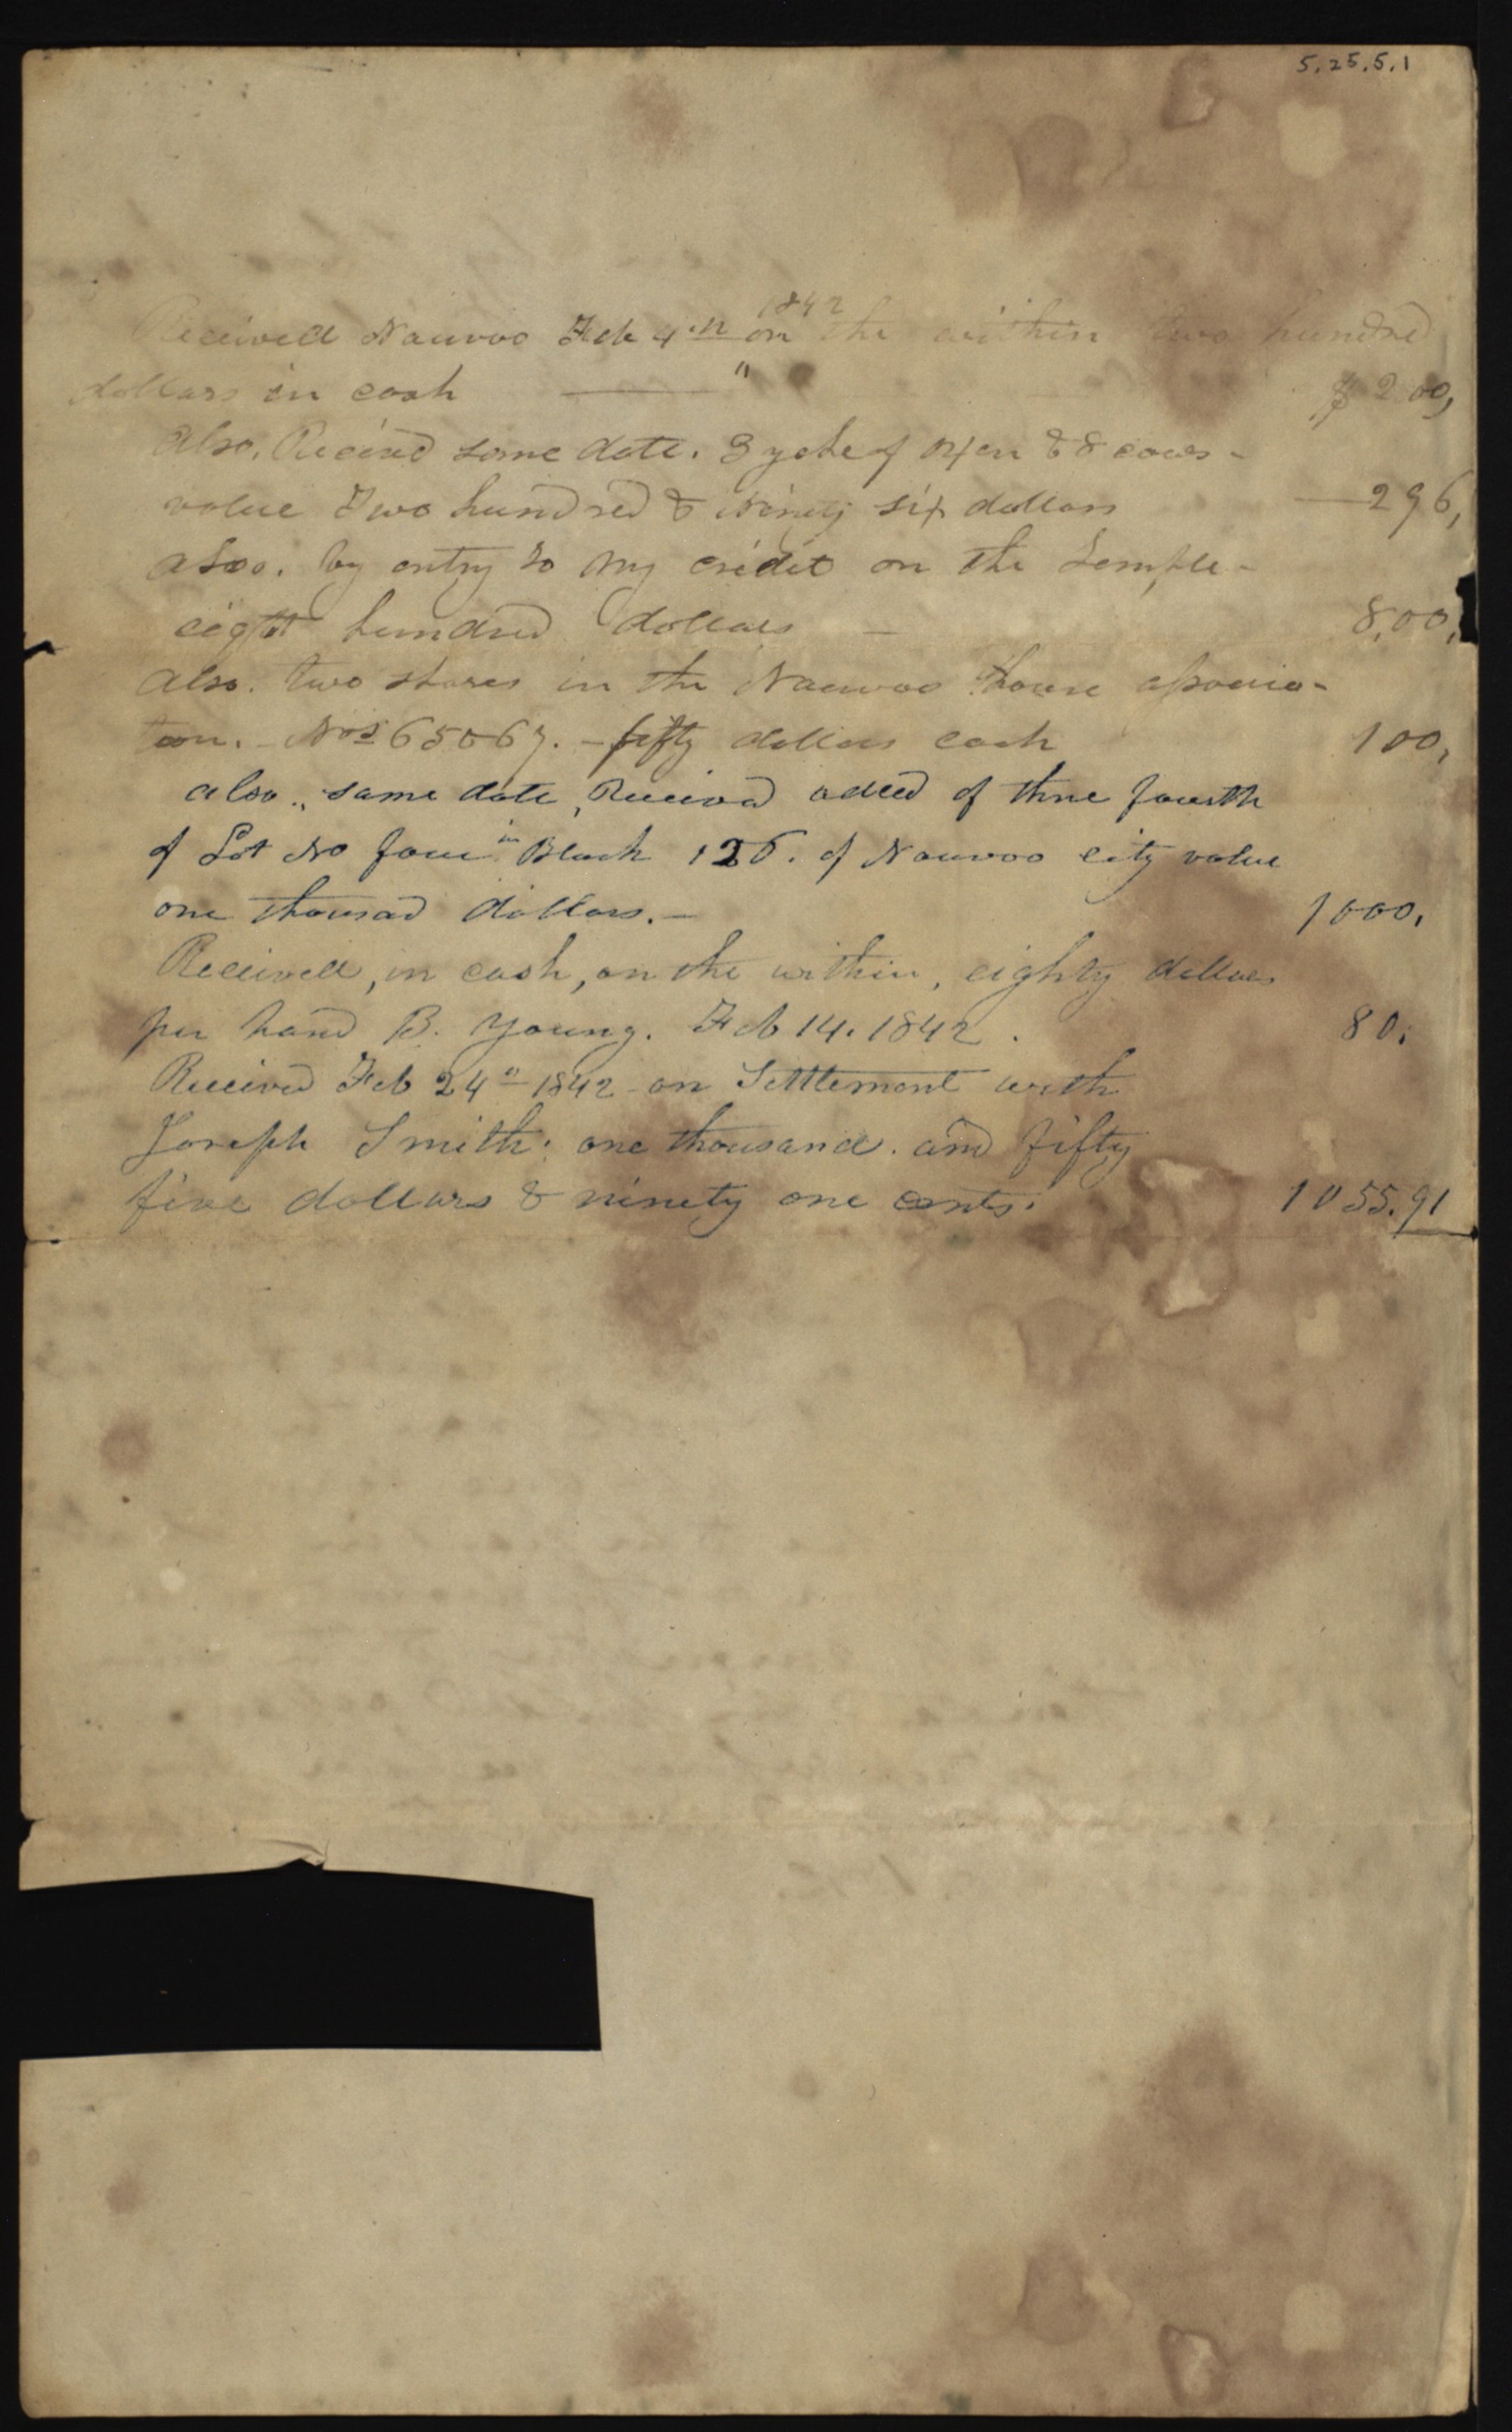 5.25.5.1
1842
Received Nauvoo Feb 4th on the within two hundred
dollars in cash — " $200,
Also, Received same date. 3 yoke of Oxen & 8 cows -
value Two hundred & Ninety six dollars — 296,
also. by entry to my credit on the Temple -
eight hundred dollars — 8,00,
Also. two shares in the Nauvoo house associa-
tion. - Nos 65 & 67. - fifty dollars each 100,
also., same date, Received a deed of three fourth
of Lot No four in Block 126. of Nauvoo city value
one thousad dollars. — 1000,
Received, in cash, on the within, eighty dollars
per hand B. Young. Feb 14. 1842. 80.
Received Feb 24th 1842 - on Settlement with
Joseph Smith; one thousand. and fifty
five dollars & ninety one cents. 1055.91